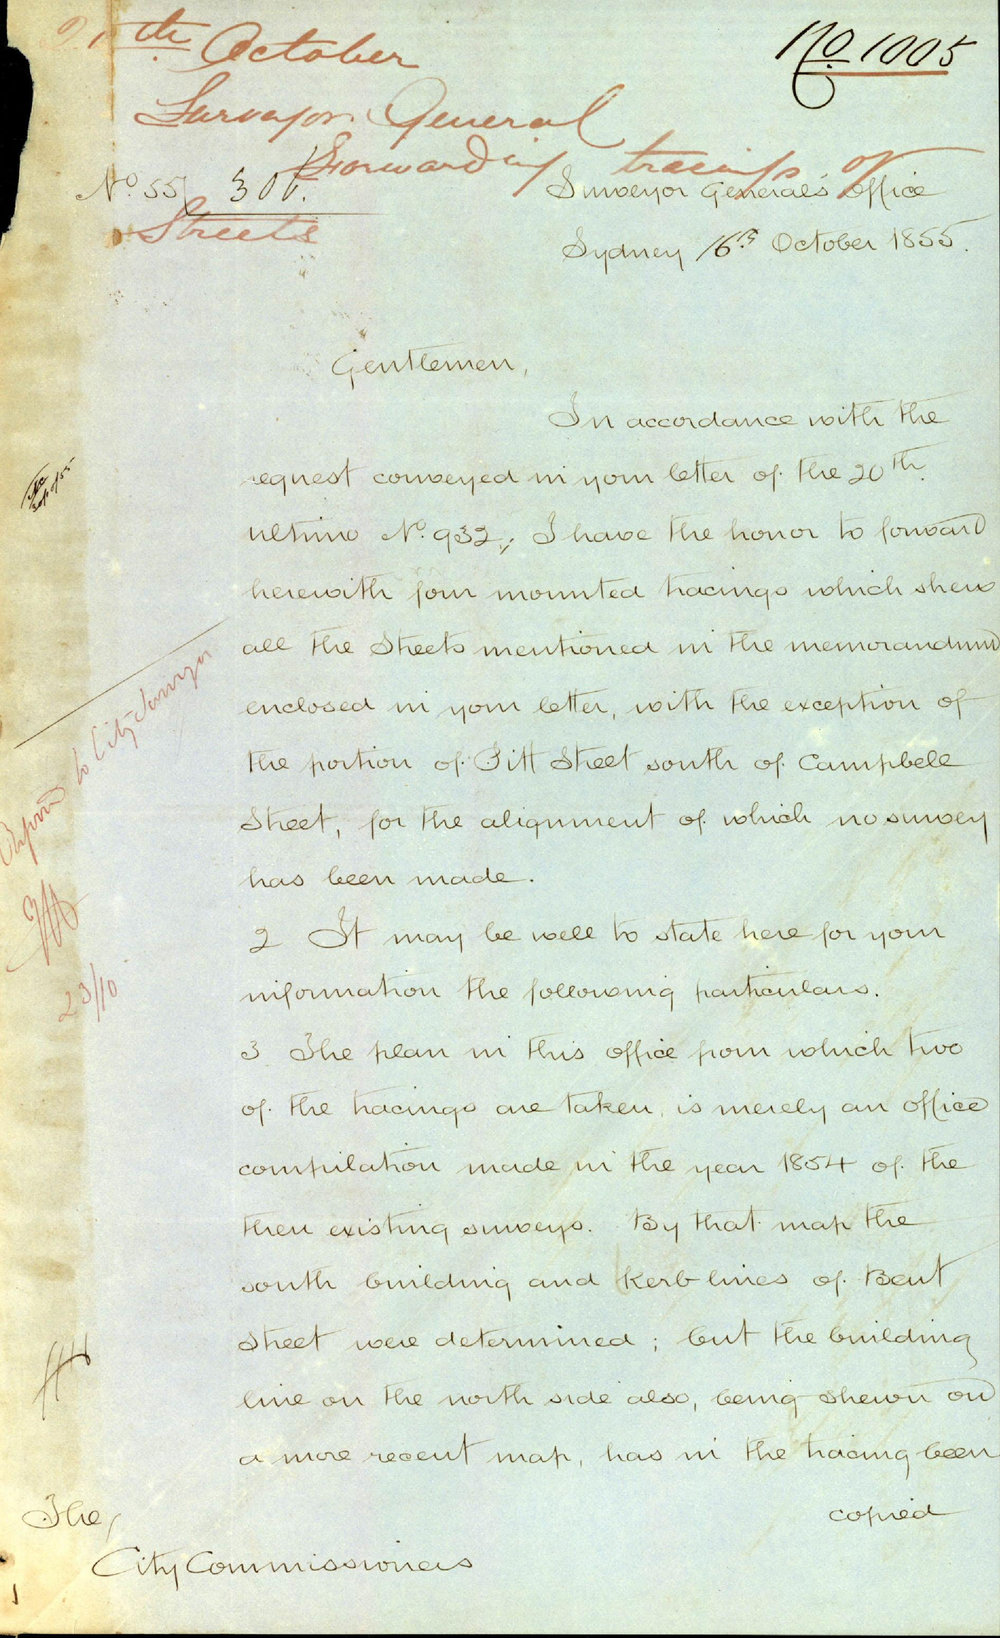 th October
No 1005
Surveyor General
Forwarding tracings of
Streets
No 55/306.
Surveyor General's Office
Sydney 16th October 1855.
Gentlemen,
In accordance with the
request conveyed in your letter of the 20th
ultimo No. 932, I have the honor to forward
herewith four mounted tracings which shew
all the Streets mentioned in the memorandum
enclosed in your letter, with the exception of
the portion of Pitt Street south of Campbell
Street, for the alignment of which no survey
has been made.
2 It may be well to state here for your
information the following particulars.
3 The plan in this office from which two
of the tracings are taken, is merely an office
compilation made in the year 1854 of the
then existing surveys. By that map the
south building and Kerb lines of Bent
Street were determined; but the building
line on the north side also, being shewn on
a more recent map, has in the tracing been
copied
The
City Commissioners
to City Surveyor
23/10